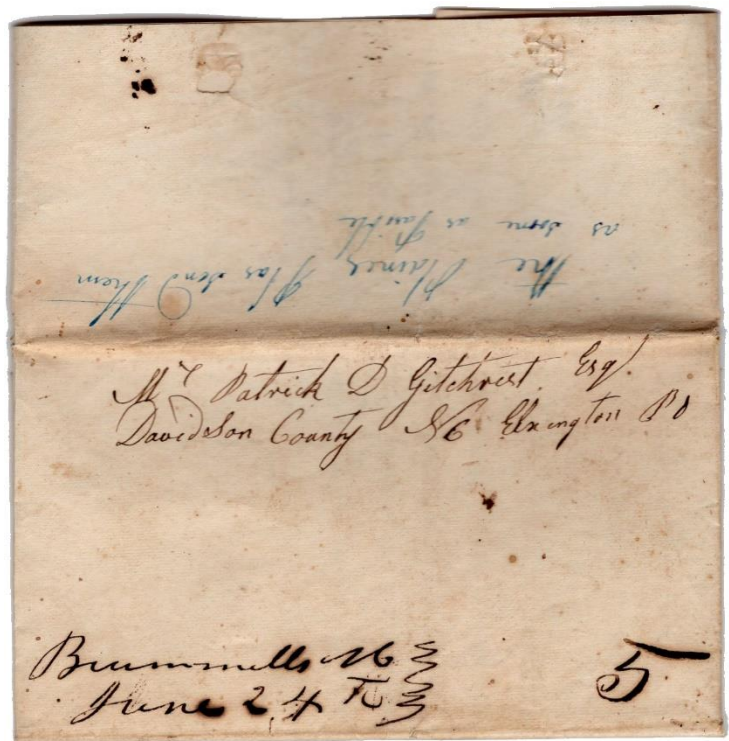 the Plaines Plas Send them
as soone as Pasible
Mr Patrick D Gilchrist Esqr.
Davidson County NC Elxington PO
Brummells NC
June 24th
5